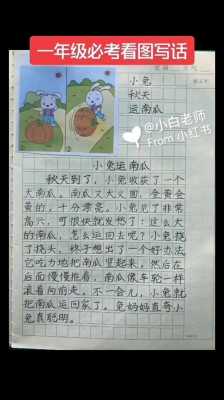 一年级必考看图写话
小兔
秋天
运南瓜
@小白老师
From 小红书
小兔运南瓜
秋天到了，小兔收获了一个
大南瓜。南瓜又大又圆，金黄金
黄的，十分漂亮。小兔见了非常
高兴，可很快就发愁了：这么大
的南瓜，怎么运回去呢？小兔挠
了挠头，终于想出了一个好办法
它吃力地把南瓜竖起来，然后在
后面慢慢推着，南瓜像车轮一样
滚着向前走。不一会儿，小兔就
把南瓜运回家了。兔妈妈直夸小
兔真聪明。